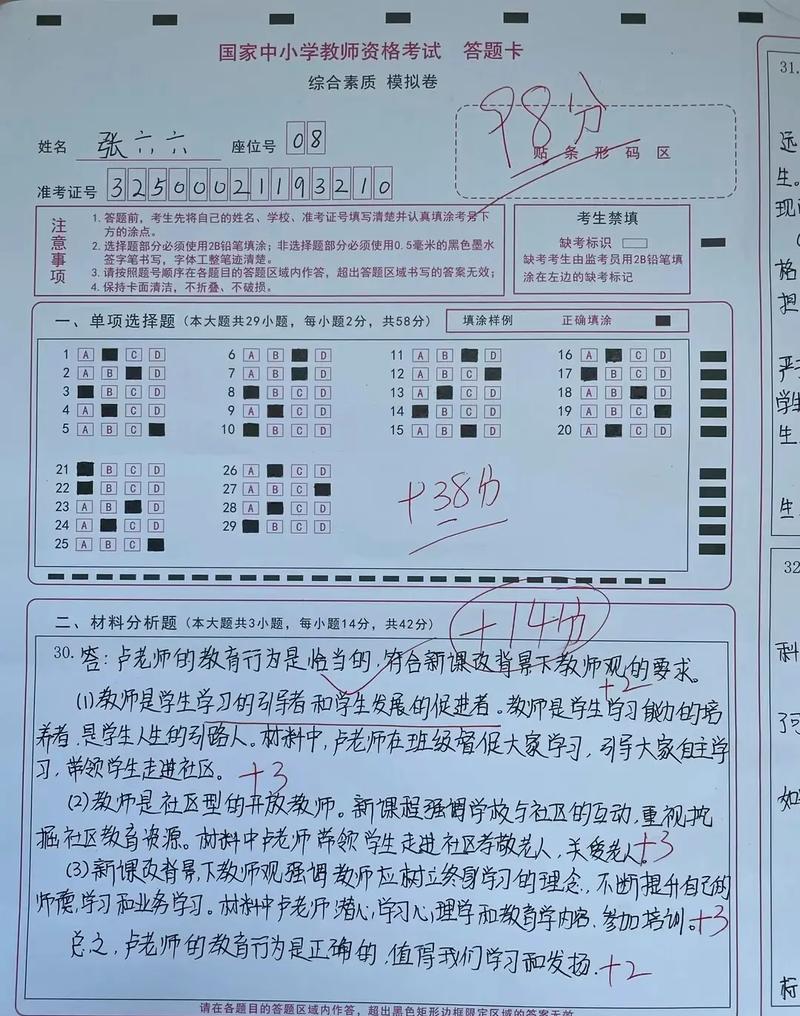 国家中小学教师资格考试 答题卡
综合素质 模拟卷
98分
姓名 张六六 座位号 08
贴条形码区
准考证号 325000211193210
注意事项
1. 答题前，考生先将自己的姓名、学校、准考证号填写清楚并认真填涂考号下
方的涂点。
2. 选择题部分必须使用2B铅笔填涂；非选择题部分必须使用0.5毫米的黑色墨水
签字笔书写，字体工整笔迹清楚。
3. 请按照题号顺序在各题目的答题区域内作答，超出答题区域书写的答案无效；
4. 保持卡面清洁，不折叠、不破损。
考生禁填
缺考标识
缺考考生由监考员用2B铅笔填
涂在左边的缺考标记
一、单项选择题（本大题共29小题，每小题2分，共58分） 填涂样例 正确填涂
1 A C D 6 A B D 11 A B D 16 A C D
2 A B D 7 A B D 12 A B C 17 B C D
3 B C D 8 B C D 13 A C D 18 A B D
4 A C D 9 A C D 14 B C D 19 A B C
5 A B C 10 B C D 15 A B D 20 A C D
21 B C D 26 A C D
22 B C D 27 A B C
23 A B D 28 A C D
24 A C D 29 B C D
25 A B C
+38分
二、材料分析题（本大题共3小题，每小题14分，共42分）
+14分
30. 答：卢老师的教育行为是恰当的，符合新课改背景下教师观的要求。
+2
(1)教师是学生学习的引导者和学生发展的促进者。教师是学生学习能力的培
养者，是学生人生的引路人。材料中，卢老师在班级督促大家学习，引导大家自主学
习，带领学生走进社区。 +3
(2)教师是社区型的开放教师。新课程强调学校与社区的互动，重视挖
掘社区教育资源。材料中卢老师带领学生走进社区孝敬老人，关爱老人。+3
(3)新课改背景下教师观强调教师应树立终身学习的理念，不断提升自己的
师德，学习和业务学习。材料中卢老师潜心学习心理学和教育学内容、参加培训。+3
总之，卢老师的教育行为是正确的，值得我们学习和发扬。+2
请在各题目的答题区域内作答，超出黑色矩形边框限定区域的答案无效
31.
远
生。
现
格
担
严
学生
生
生
32
科
了
如
标